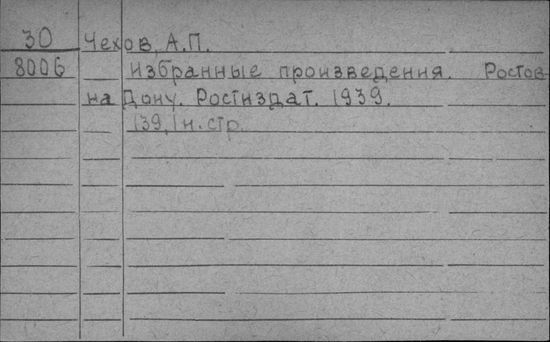 30 Чехов, А.П.
8006 Избранные произведения. Ростов
на Дону. Ростиздат. 1939.
139, 1 н. стр.